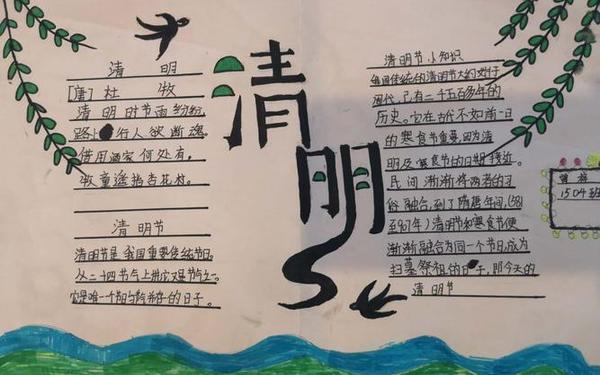 清明
[唐] 杜牧
清明时节雨纷纷,
路上行人欲断魂。
借问酒家何处有,
牧童遥指杏花村。
清明节
清明节是我国重要传统节日,
从二十四节气上讲,它又是节气之一。
它是唯一个节日与节气并存的日子。
清明
清明节小知识
我国传统的清明节大约始于
周代,已有二千五百多年的
历史。它在古代不如前一日
的寒食节重要,因为清
明及寒食节的日期接近,
民间渐渐将两者的习
俗融合,到了隋唐年间,(581
至907年)清明节和寒食节便
渐渐融合为同一个节日,成为
扫墓祭祖的日子,即今天的
清明节
1504班